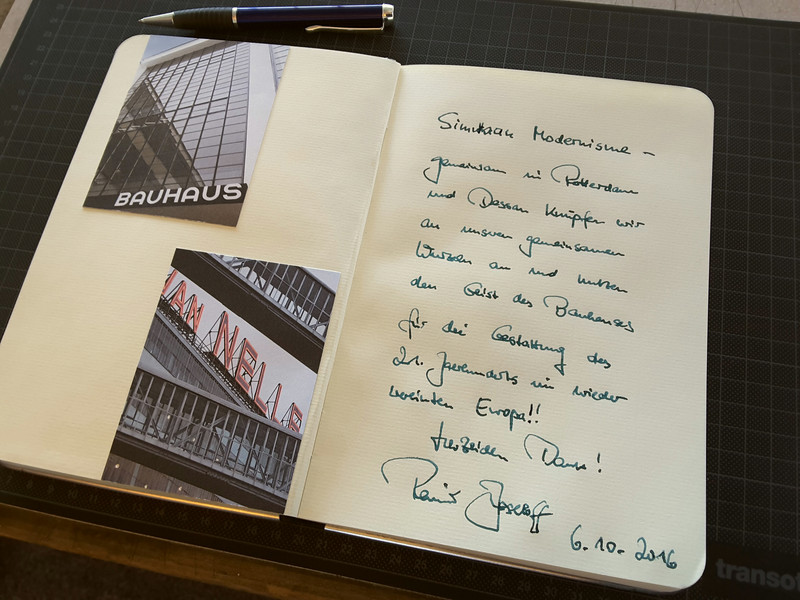 BAUHAUS
VAN NELLE
Modernisme –
gemeinsam in Rotterdam
und Dessau knüpfen wir
an unseren gemeinsamen
Wurzeln an und nutzen
den Geist des Bauhauses
für die Gestaltung des
21. Jahrhunderts im wieder
vereinten Europa!!
Herzlichen Dank!
6.10.2016
transo